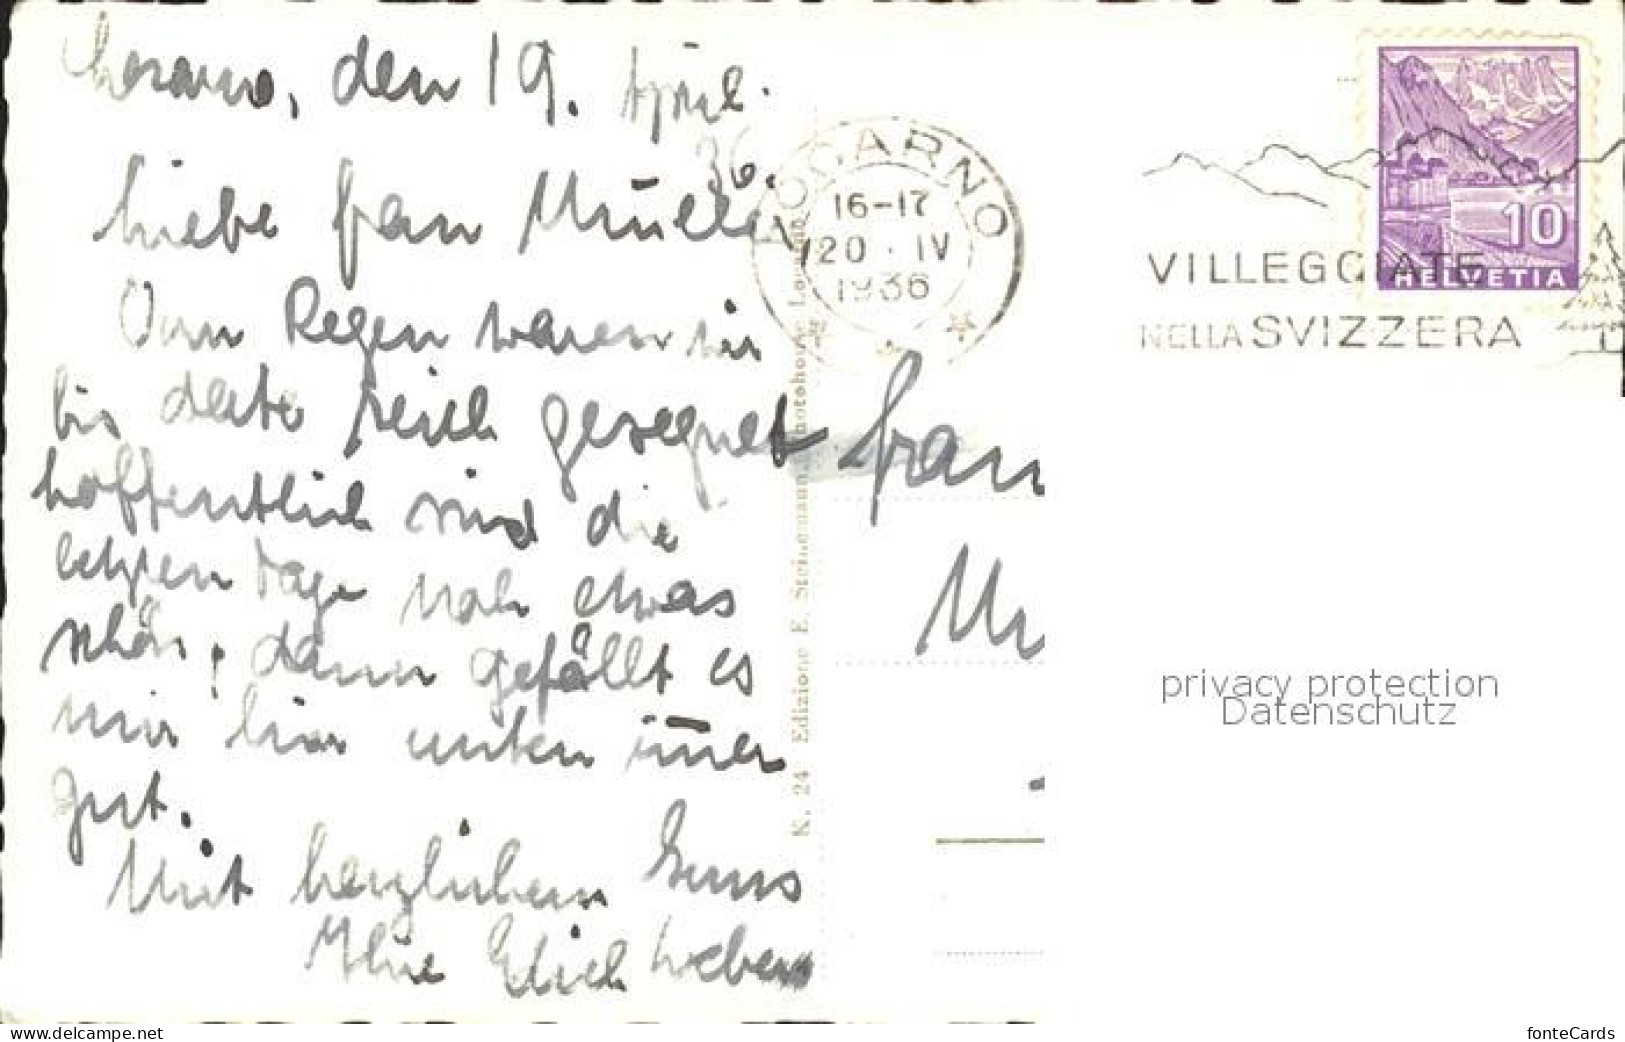 Locarno, den 19. April.
36.
Liebe Frau Müller
Vom Regen waren wir
bis dato reich gesegnet
hoffentlich sind die
letzten Tage noch etwas
schön, dann gefällt es
mir hier unten imer
gut.
Mit herzlichem Gruss
Ihre Weber
K. 24 Edizione E. Steinemann, Photohouse Locarno
LOCARNO
16-17
20 · IV
1936
VILLEGGIATE
NELLA SVIZZERA
10
HELVETIA
Frau
privacy protection
Datenschutz
www.delcampe.net
fonteCards